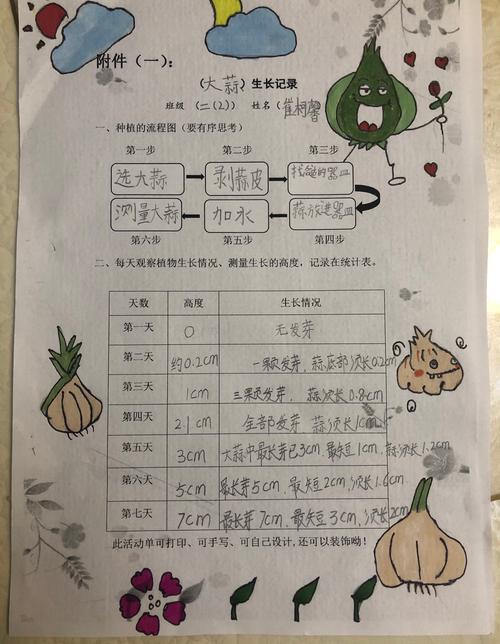 附件（一）：
（大蒜）生长记录
班级（二（2）） 姓名（崔桐馨
一、种植的流程图（要有序思考）
第一步 第二步 第三步
选大蒜 剥蒜皮 找种的器皿
测量大蒜 加水 蒜放进器皿
第六步 第五步 第四步
二、每天观察植物生长情况、测量生长的高度，记录在统计表。
天数 高度 生长情况
第一天 0 无发芽
第二天 约0.2cm 一颗发芽，蒜底部须长0.2cm
第三天 1cm 三颗发芽，蒜须长0.8cm
第四天 2.1cm 全部发芽 蒜须长1cm
第五天 3cm 大蒜中最长芽已3cm，最短1cm，蒜须长1.2cm
第六天 5cm 最长芽5cm，最短2cm，须长1.6cm
第七天 7cm 最长芽7cm，最短3cm，须长2cm
此活动单可打印、可手写、可自己设计，还可以装饰呦！